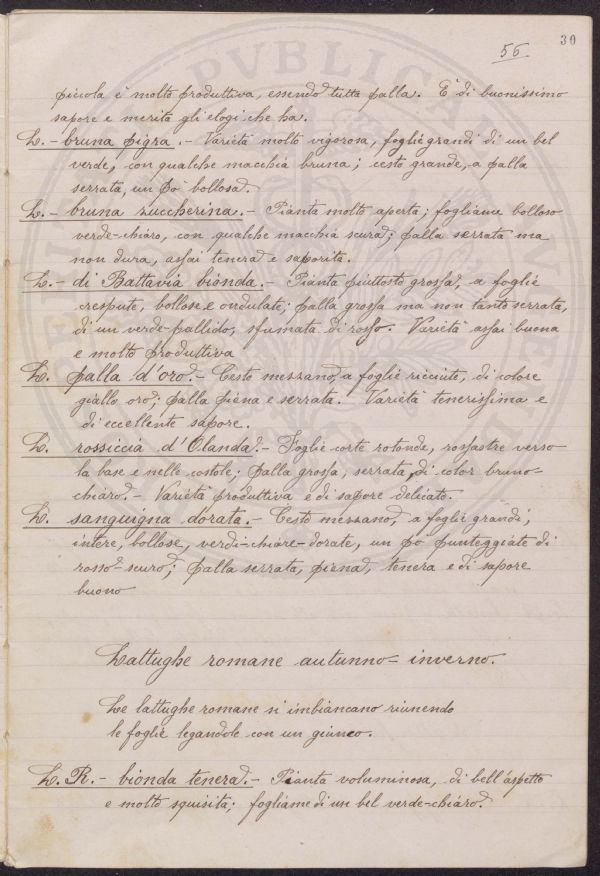 30
56.
piccola è molto produttiva, essendo tutta palla. È di buonissimo
sapore e merita gli elogi che ha.
L. - bruna pigra. - Varietà molto vigorosa, foglie grandi di un bel
verde, con qualche macchia bruna; cesto grande, a palla
serrata, un po' bollosa.
L. - bruna zuccherina. - Pianta molto aperta; fogliame bolloso
verde-chiaro, con qualche macchia scura; palla serrata ma
non dura, assai tenera e saporita.
L. - di Battavia bionda. - Pianta piuttosto grossa, a foglie
crespute, bollose e ondulate; palla grossa ma non tanto serrata,
di un verde-pallido, sfumata di rosso. Varietà assai buona
e molto produttiva
L. palla d'oro. - Cesto mezzano, a foglie ricciute, di colore
giallo oro; palla piena e serrata. Varietà tenerissima e
di eccellente sapore.
L. rossiccia d'Olanda. - Foglie corte rotonde, rossastre verso
la base e nelle costole; palla grossa, serrata, di color bruno-
chiaro. - Varietà produttiva e di sapore delicato.
L. sanguigna dorata. - Cesto mezzano, a foglie grandi,
intere, bollose, verdi-chiare-dorate, un po' punteggiate di
rosso-scuro; palla serrata, piena, tenera e di sapore
buono
Lattughe romane autunno-inverno.
Le lattughe romane si imbiancano riunendo
le foglie legandole con un giunco.
L. R. - bionda tenera. - Pianta voluminosa, di bell'aspetto
e molto squisita; fogliame di un bel verde-chiaro.